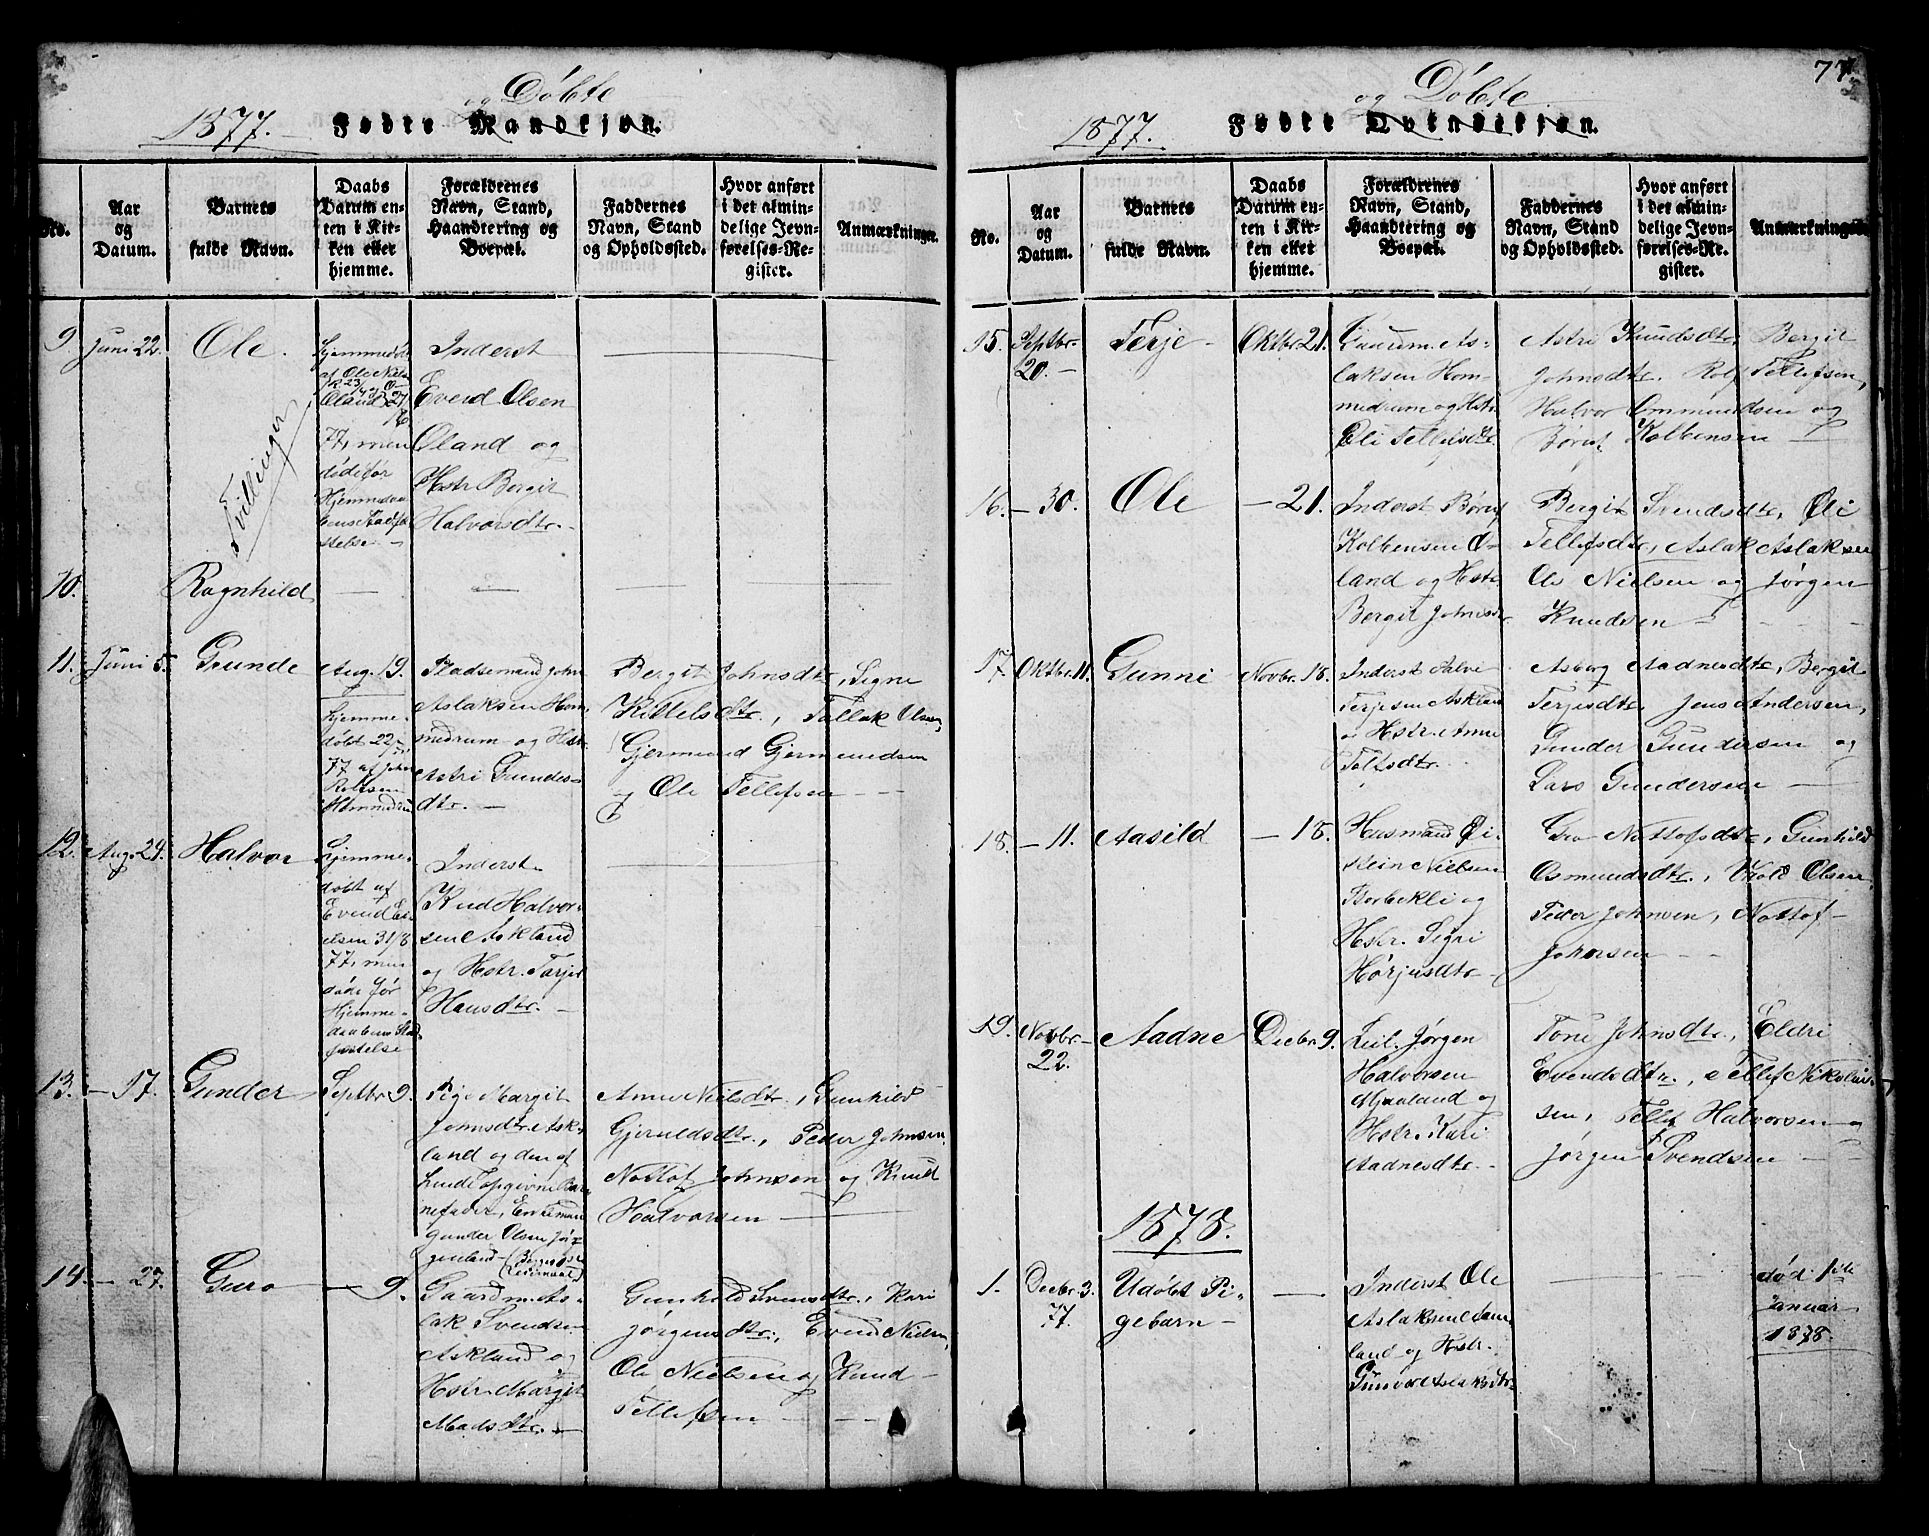 og Döbte
1877. Fødte Mandkjøn.
No.
Aar
og
Datum.
Barnets
fulde Navn.
Daabs
Datum en-
ten i Kir-
ken eller
hjemme.
Forældrenes
Navn, Stand,
Haandtering og
Boepæl.
Faddernes
Navn, Stand
og Opholdssted.
Hvor anført
i det almin-
delige Jevn-
førelses-Re-
gister.
Anmærkninger.
9. Juni 22. Ole.
af Ole Niels
Øland 27/6
77, men
døde før
Hjemmedaa-
bens Stadfæ-
stelse. -
Inderst
Evend Olsen
Øland og
Hstr. Bergit
Halvorsdtr. -
Tvillinger
10. Ragnhild
11. Juni 5. Grunde
Aug. 19.
Hjemme-
døbt 22/
77 af John
Rolfsen
Pladsemand John
Aslaksen Hom-
medrum og Hstr.
Astri Grundes-
dtr. -
Bergit Johnsdtr., Signe
Kittelsdtr., Tallak Olsen,
Gjermund Gjermundsen
og Ole Tellefsen - -
12. Aug. 24. Halvor
Hjemme-
døbt af
Evend E-
elsen 31/8
77, men
døde før
Hjemme-
daabens Stad-
fæstelse
Inderst
Knud Halvor-
sen Askland
og Hstr. Torjer
Hansdtr. -
13. - 17. Gunder
Septbr 9.
Pige Margit
Johnsdtr. Ask-
land og den af
hende opgivne Bar-
nefader, Enkemand
Gunder Olsen Jør-
geneland -
Anne Nielsdtr., Gunhild
Gjeruldsdtr., Peder Johnsen
Nottof Johnsen og Knud
Halvorsen -
14. - 27. Guro - 9.
Gaardm. As-
lak Svendsen
Askland og
Hstr. Margit
Madsdtr. -
Gunhild Svensdtr., Kari
Jörgensdtr., Evend Nielsen,
Ole Nielsen og Knud
Tellefsen - -
77.
og Döbte
1877. Fødte Qvindekjøn.
No.
Aar
og
Datum.
Barnets
fulde Navn.
Daabs
Datum en-
ten i Kir-
ken eller
hjemme.
Forældrenes
Navn, Stand,
Haandtering og
Boepæl.
Faddernes
Navn, Stand
og Opholdssted.
Hvor anført
i det almin-
delige Jevn-
førelses-Re-
gister.
Anmærkninger.
15. Septbr. 20. - Terje - Oktbr. 21.
Gaardm. As-
laksen Hom-
medrum og Hstr.
Eli Tellefsdtr.
Astri Knudsdtr., Bergit
Johnsdtr. Rolf Tellefsen,
Halvor Ommundsen og
Børuf Kolbensen -
16. - 30. Ole - 21.
Inderst Børuf
Kolbensen Ø-
land og Hstr.
Bergit Johnsdtr
Bergit Svendsdtr., Eli
Tellefsdtr., Aslak Aslaksen
Ole Nielsen og Jørgen
Knudsen -
17. Oktbr. 11. Gunni Novbr. 18.
Inderst Salve
Terjesen Askland
og Hstr. Anne
Asborg Aadnesdtr., Bergit
Terjesdtr. Jens Andersen,
Gunder Gundersen og
Lars Gundersen -
18. - 11. Aasild - 18.
Husmand Ei-
stein Nielsen
Borbekli og
Hstr. Signi
Hørjusdtr -
Gro Nottofsdtr., Gunhild
Osmundsdtr., Olsen
Peder Johnsen, Nottof
Johnsen - -
19. Novbr. 22. Aadne Decbr. 9.
Leil. Jørgen
Halvorsen
Maaland og
Hstr. Kari
Aadnesdtr. -
Tone Johnsdtr., Eldri
Evendsdtr., Tellef Nikolai-
sen, Tellef Halvorsen og
Jørgen Svendsen - -
1878.
1. Decbr. 3. 77. Udøbt Pi-
gebarn -
Inderst Ole
Aslaksen
land og Hstr.
Gunvor Aslaksdtr.
død 1ste
Januar
1878.